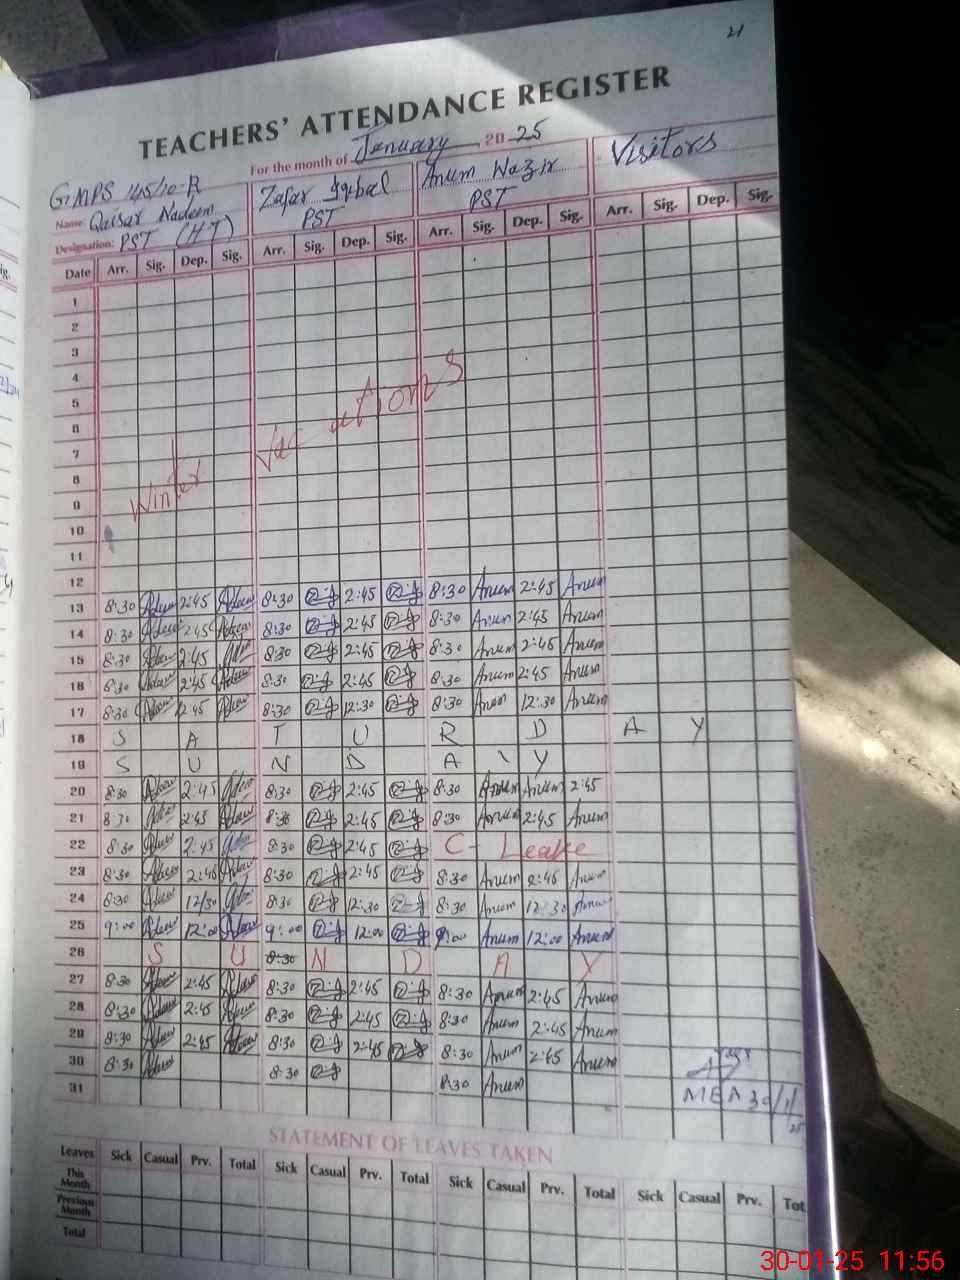 21
TEACHERS' ATTENDANCE REGISTER
For the month of January 2025
GMPS 145/10-R
Name: Qaisar Nadeem Zafar Iqbal Anum Nazir Visitors
Designation: PST (HT) PST PST
Date Arr. Sig. Dep. Sig. Arr. Sig. Dep. Sig. Arr. Sig. Dep. Sig. Arr. Sig. Dep. Sig.
1
2
3
4
5
6
7
8
9
10
11
Winter Vacations
12
13 8:30 2:45 8:30 2:45 8:30 Anum 2:45 Anum
14 8:30 2:45 8:30 2:45 8:30 Anum 2:45 Anum
15 8:30 2:45 8:30 2:45 8:30 Anum 2:45 Anum
16 8:30 2:45 8:30 2:45 8:30 Anum 2:45 Anum
17 8:30 12:45 8:30 12:30 8:30 Anum 12:30 Anum
18 S A T U R D A Y
19 S U N D A Y
20 8:30 2:45 8:30 2:45 8:30 Anum Anum 2:45
21 8:30 2:45 8:30 2:45 8:30 Anum 2:45 Anum
22 8:30 2:45 8:30 2:45 C- Leave
23 8:30 2:45 8:30 2:45 8:30 Anum 2:45 Anum
24 8:30 12/30 8:30 12:30 8:30 Anum 12:30 Anum
25 9:00 12:00 9:00 12:00 9:00 Anum 12:00 Anum
26 S U 8:30 N D A Y
27 8:30 2:45 8:30 2:45 8:30 Anum 2:45 Anum
28 8:30 2:45 8:30 2:45 8:30 Anum 2:45 Anum
29 8:30 2:45 8:30 2:45 8:30 Anum 2:45 Anum
30 8:30 8:30 8:30 Anum
31
MEA 30/1/25
STATEMENT OF LEAVES TAKEN
Leaves Sick Casual Prv. Total Sick Casual Prv. Total Sick Casual Prv. Total Sick Casual Prv. Tot
This Month
Previous Month
Total
30-01-25 11:56